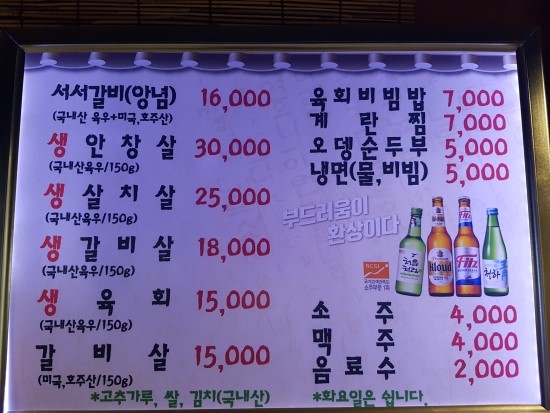 서서갈비(양념) 16,000
(국내산 육우+미국,호주산)
생안창살 30,000
(국내산육우/150g)
생살치살 25,000
(국내산육우/150g)
생갈비살 18,000
(국내산육우/150g)
생육회 15,000
(국내산육우/150g)
갈비살 15,000
(미국,호주산/150g)
*고추가루, 쌀, 김치(국내산)
육회비빔밥 7,000
계란찜 7,000
오뎅순두부 5,000
냉면(물,비빔) 5,000
부드러움이
환상이다
처음처럼
Kloud
Fitz
청하
NCSI
소주 4,000
맥주 4,000
음료수 2,000
*화요일은 쉽니다.